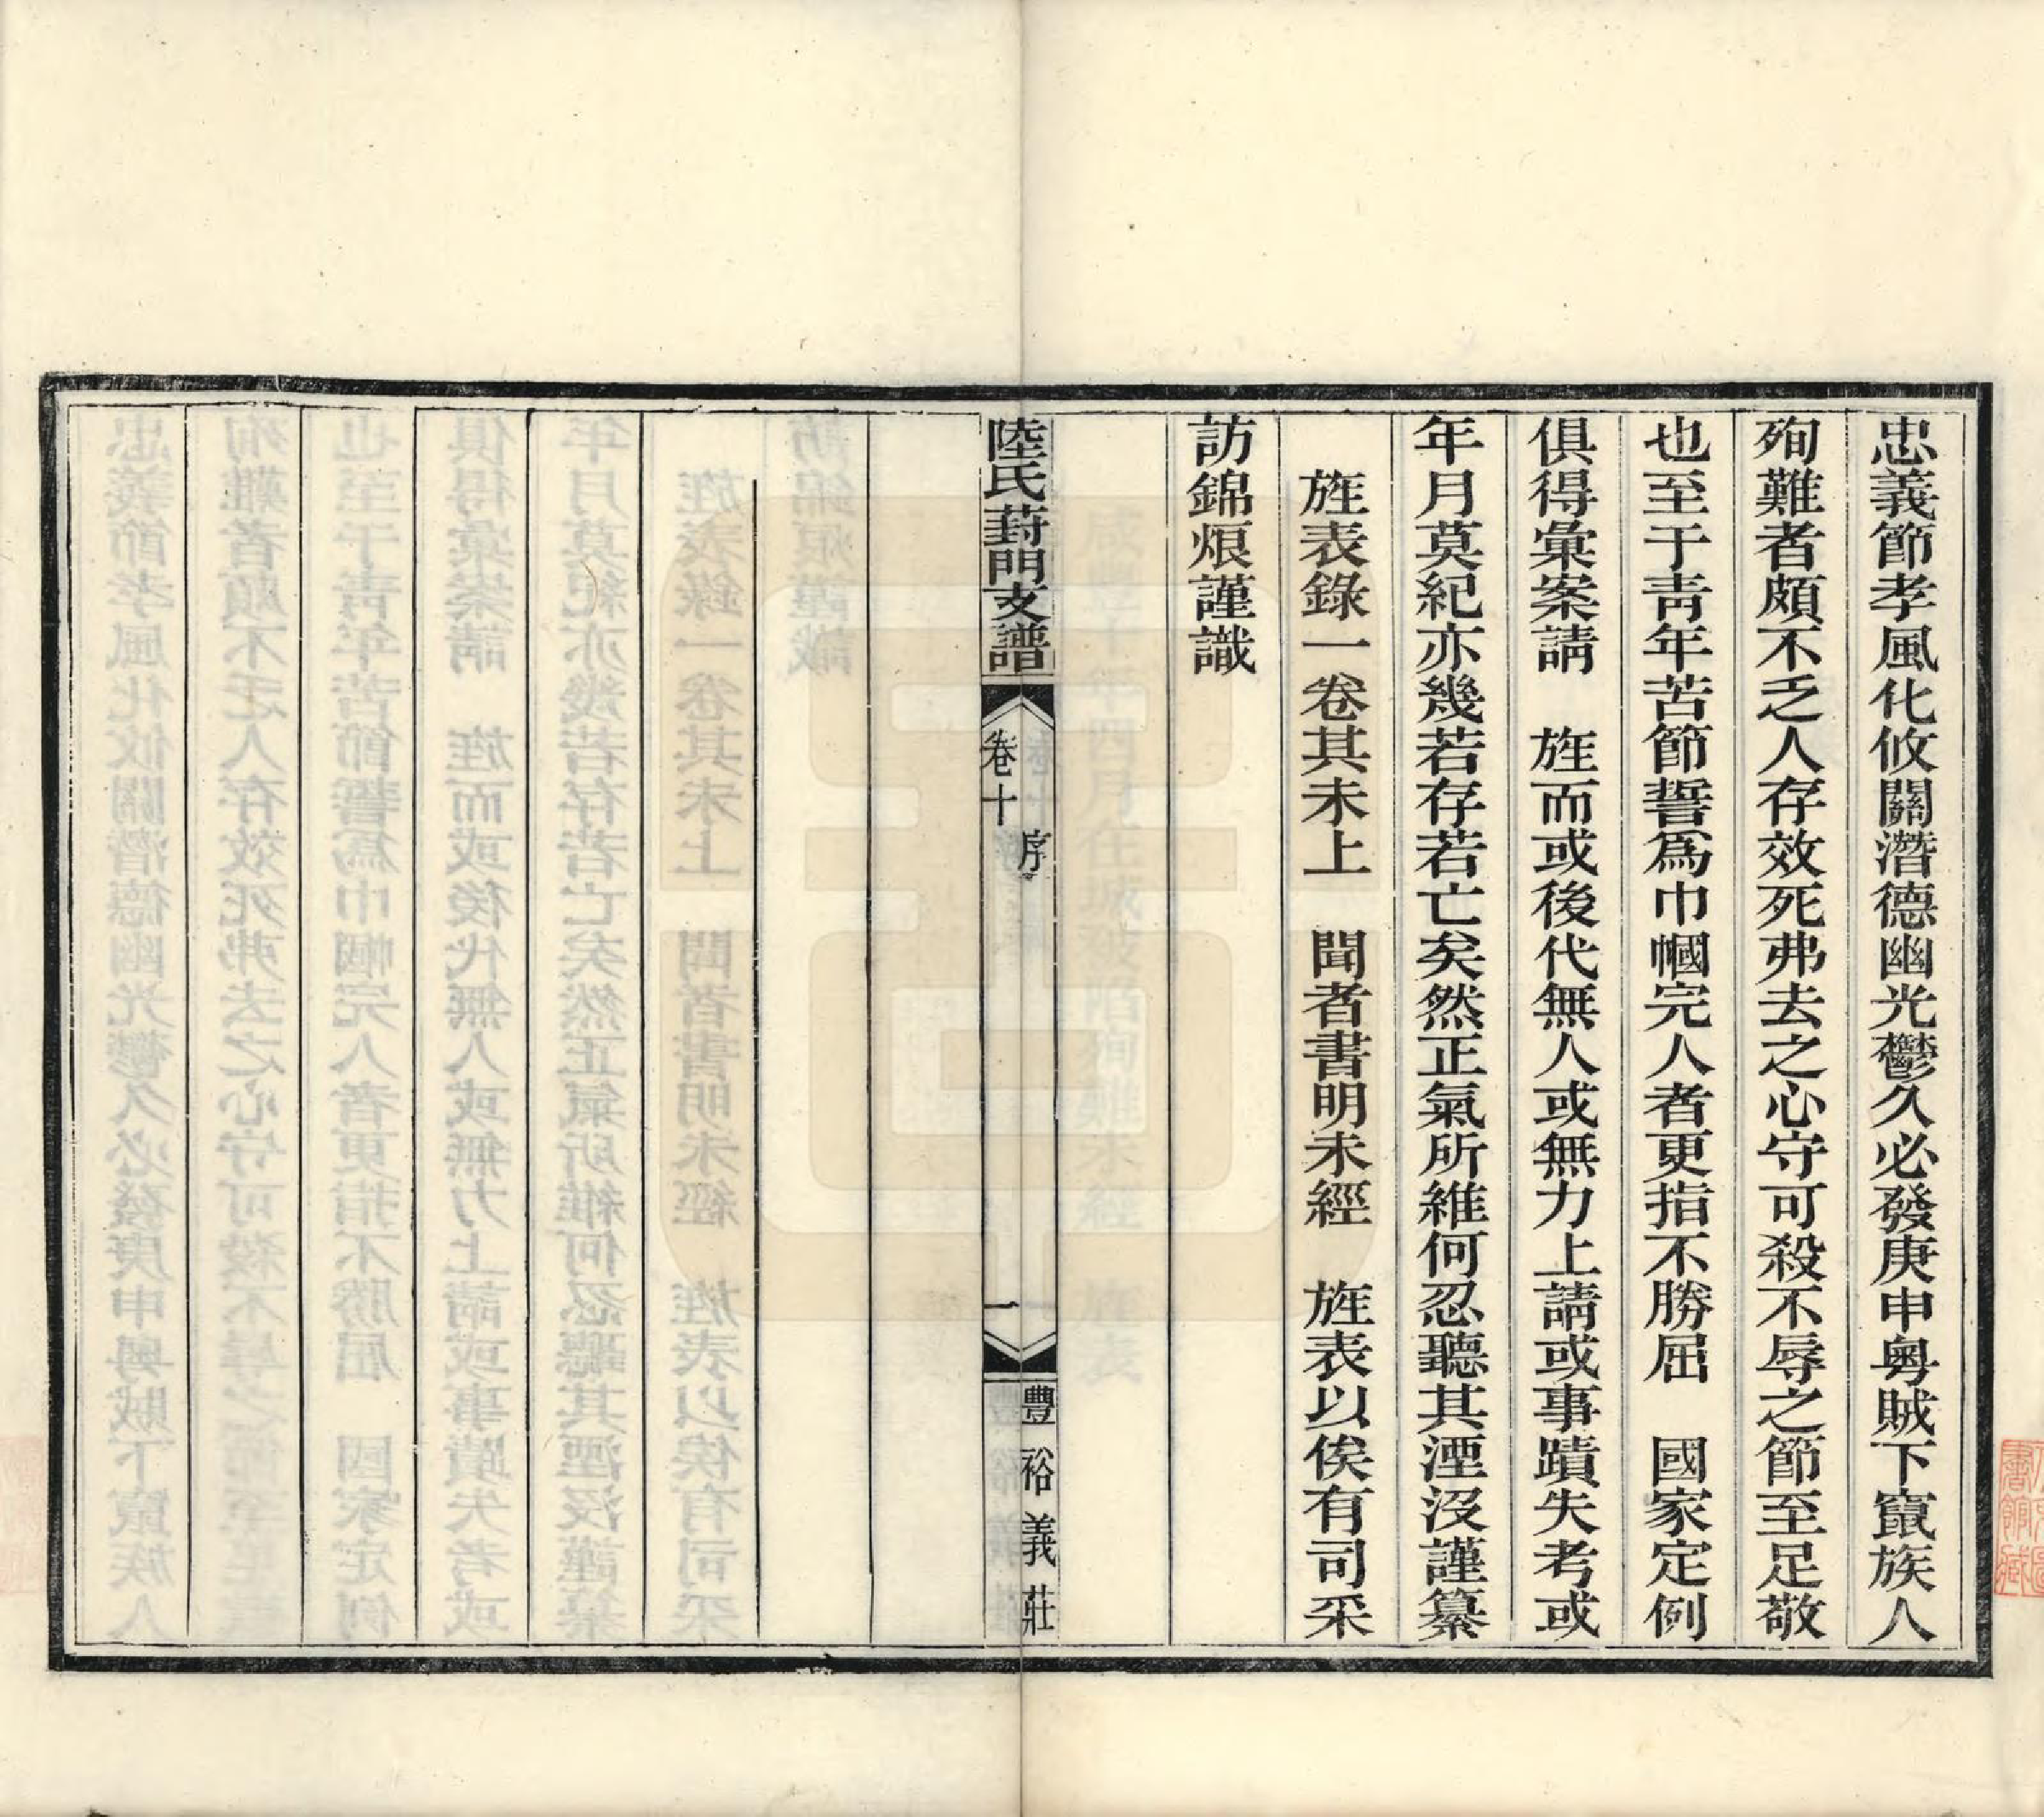 忠義節孝風化攸關潛德幽光鬱久必發庚申粵賊下竄族人
殉難者頗不乏人存效死弗去之心守可殺不辱之節至足敬
也至于靑年苦節誓爲巾幗完人者更指不勝屈　國家定例
俱得彙案請　旌而或後代無人或無力上請或事蹟失考或
年月莫紀亦幾若存若亡矣然正氣所維何忍聽其湮沒謹纂
旌表錄一卷其未上　聞者書明未經　旌表以俟有司采
訪錦烺謹識
陸氏葑門支譜
卷十
序
一
豐裕義莊